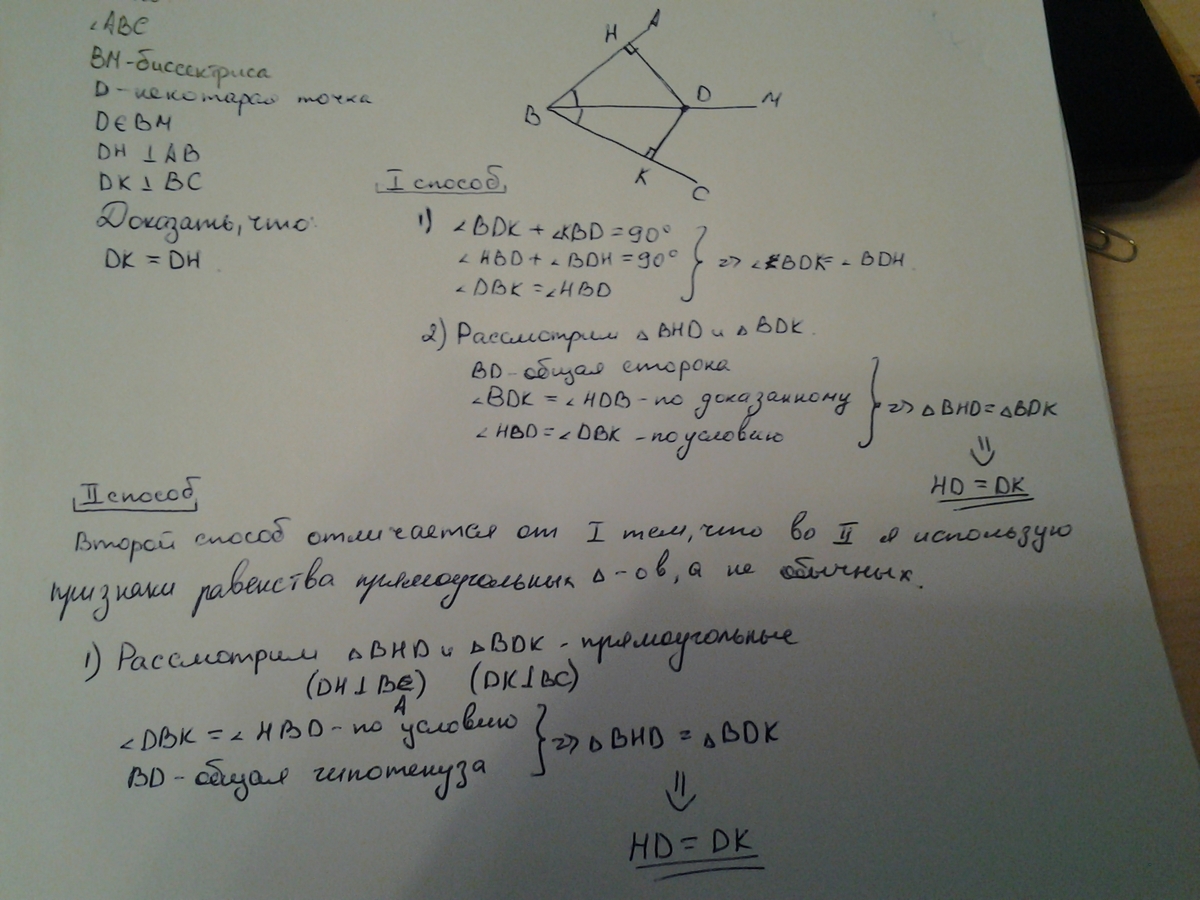 ∠ABC
BM-биссектриса
D-некоторая точка
D∈BM
DH ⊥ AB
DK ⊥ BC
Доказать, что:
DK = DH
A
H
B
D
M
K
C
I способ
1) ∠BDK + ∠KBD = 90°
∠HBD + ∠BDH = 90° => ∠BDK = ∠BDH.
∠DBK = ∠HBD
2) Рассмотрим △BHD и △BDK.
BD-общая сторона
∠BDK = ∠HDB - по доказанному => △BHD = △BDK
∠HBD = ∠DBK - по условию
⇓
HD = DK
II способ
Второй способ отличается от I тем, что во II я использую
признаки равенства прямоугольных △-ов, а не обычных.
1) Рассмотрим △BHD и △BDK - прямоугольные
(DH ⊥ BA) (DK ⊥ BC)
∠DBK = ∠HBD - по условию => △BHD = △BDK
BD - общая гипотенуза
⇓
HD = DK